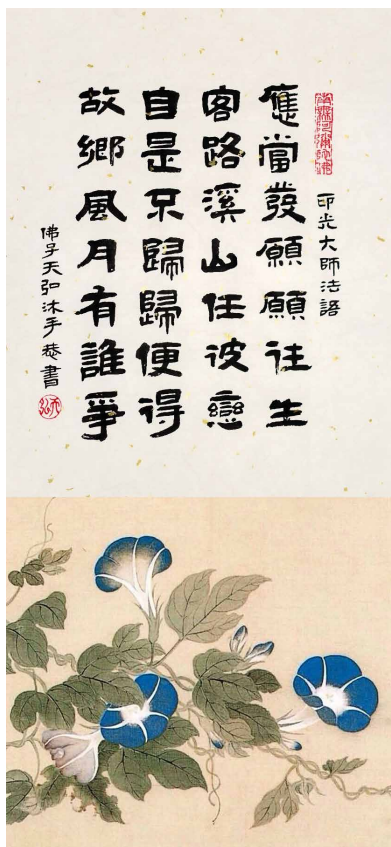 印光大師法語
應當發願願往生
客路溪山任彼戀
自是不歸歸便得
故鄉風月有誰爭
佛子天弘沐手恭書